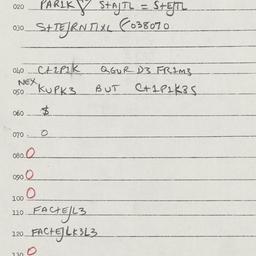 020 PARIK ▽ S+AJTL = S+EJTL
030 S+TEJRNTIXL (038070
040 C+IPIK AGUR D3 FRIM3
NEX
050 KUPK3 BUT C+IPIK3S
060 $
070 O
080 O
090 O
100 O
110 FAC+EJL3
120 FAC+EJLK3L3
130 O